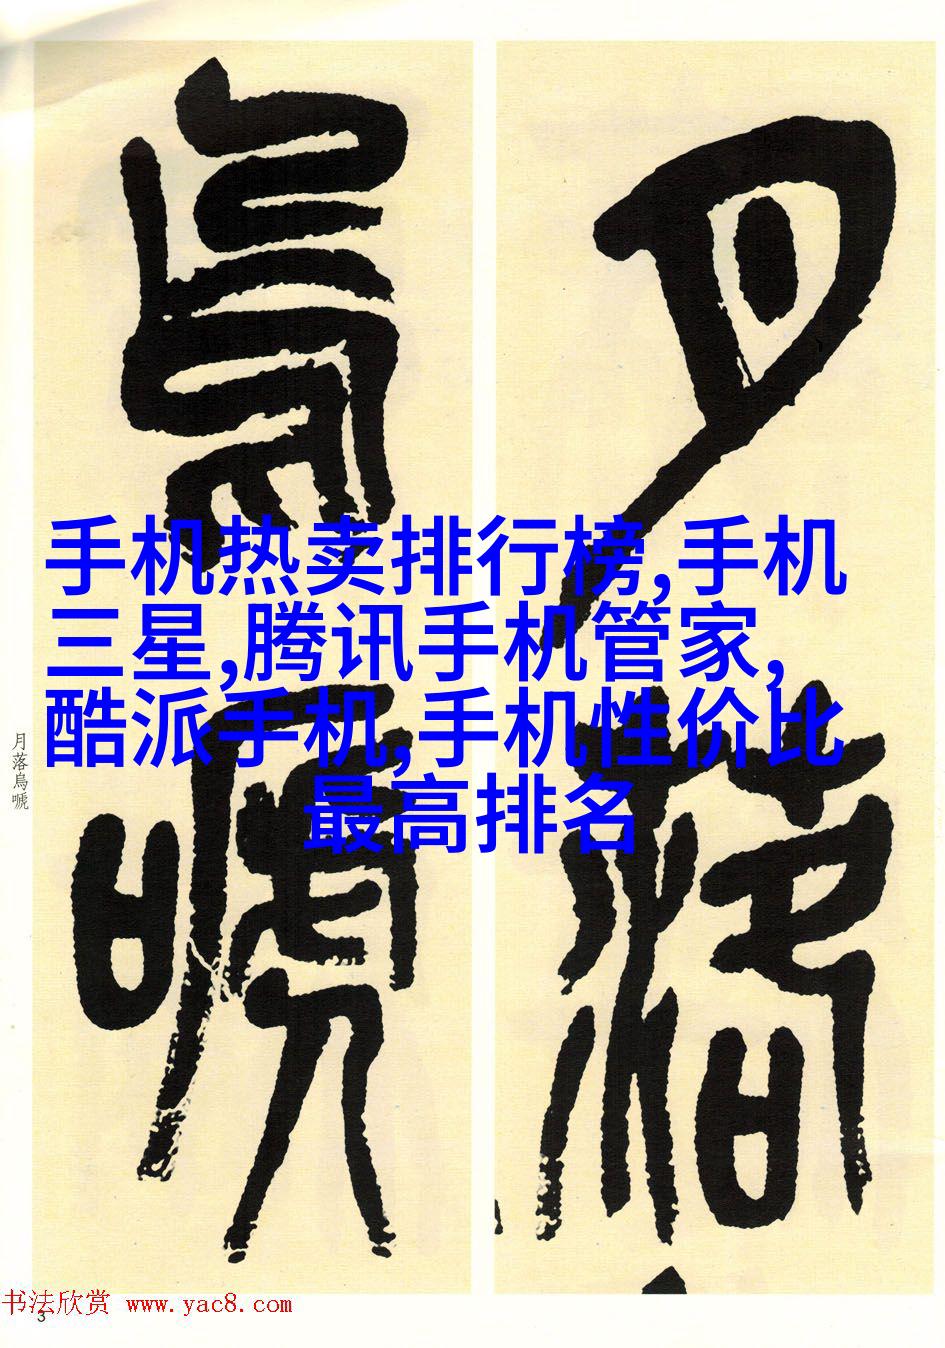 月落烏嗁
手机热卖排行榜,手机
三星,腾讯手机管家,
酷派手机,手机性价比
最高排名
月落烏嗁
书法欣赏 www.yac8.com
3